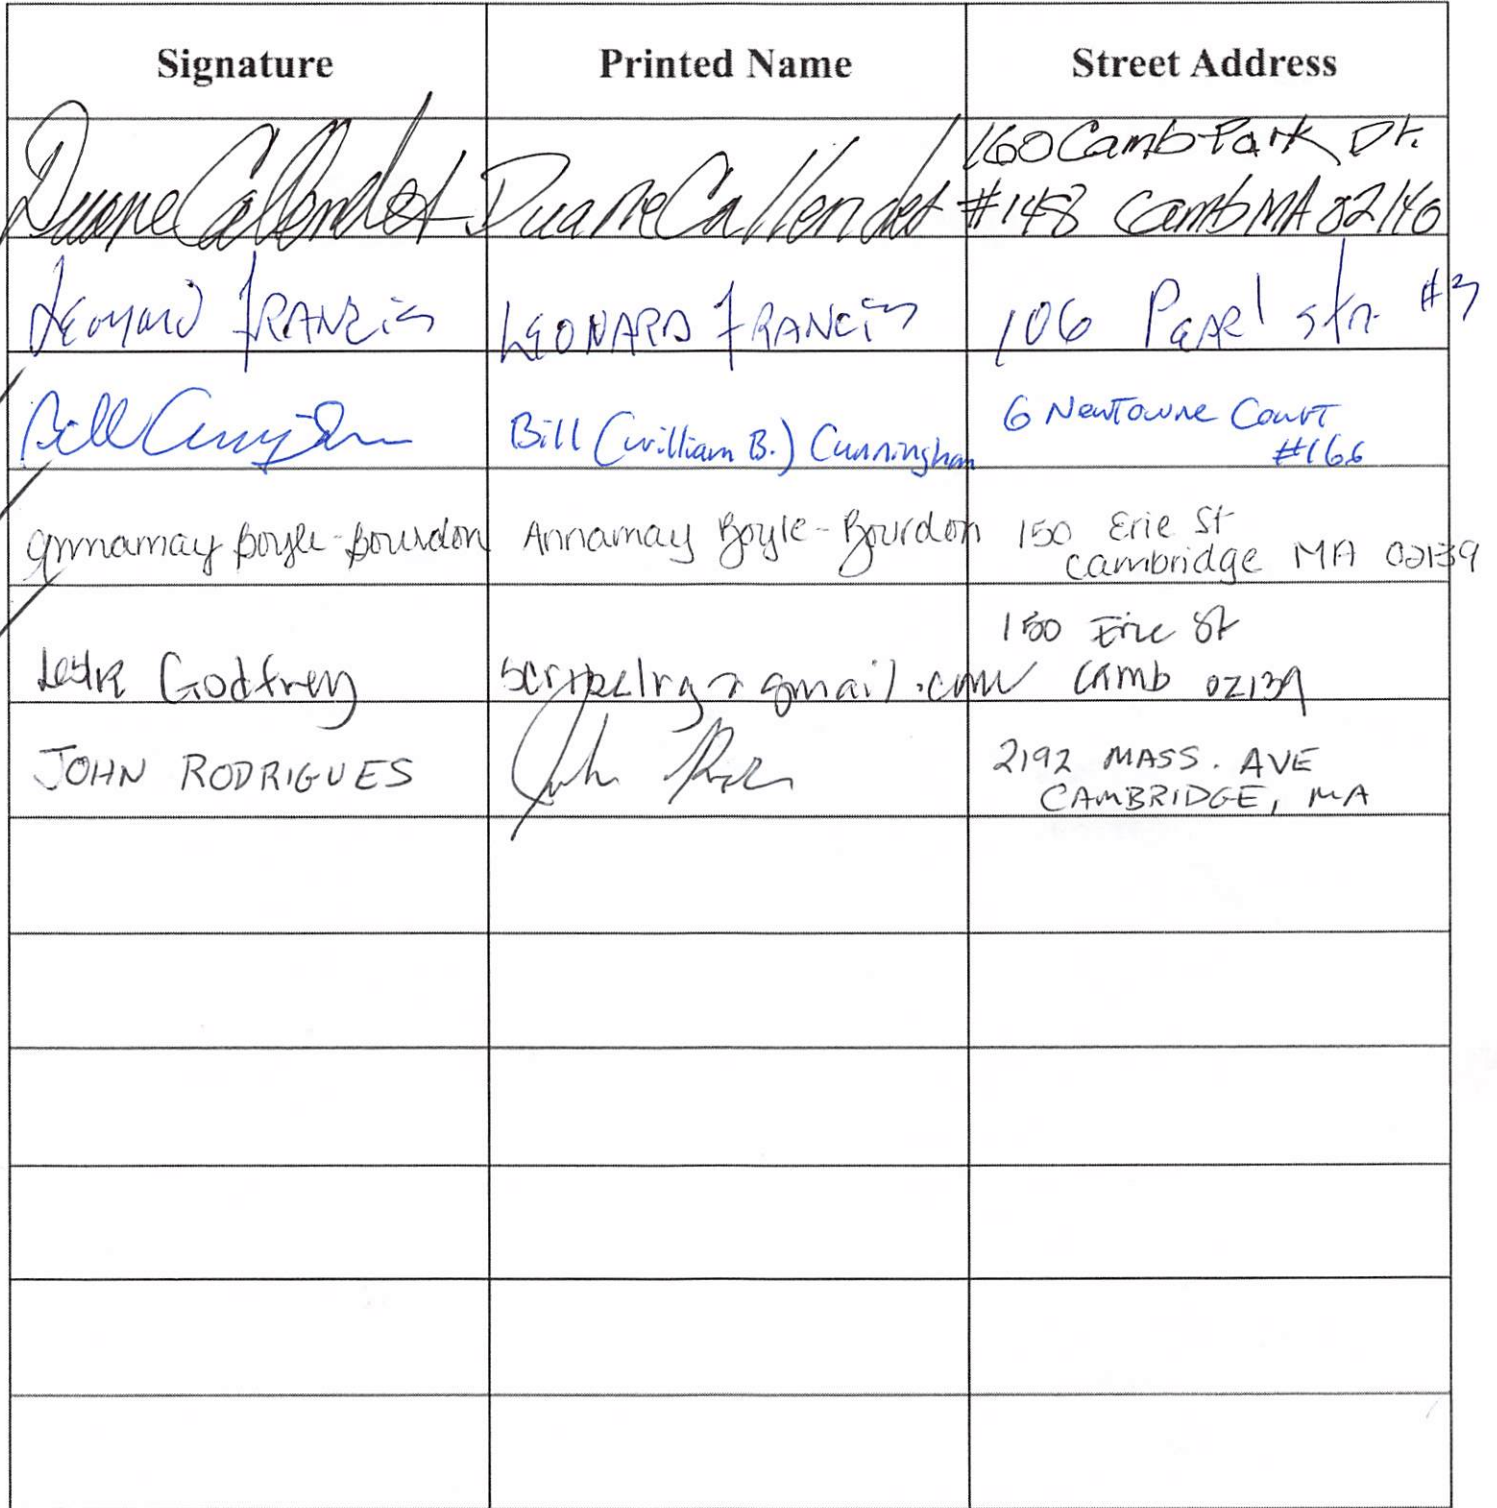 Signature Printed Name Street Address
160 CambPark Dr.
Duane Callender Duane Callender #148 Camb MA 02140
Leonard FRANCIS LEONARD FRANCIS 106 Pearl str. #3
Bill Cunningham Bill (William B.) Cunningham 6 Newtowne Court
#166
Annamay Boyle-Bourdon Annamay Boyle-Bourdon 150 Erie St
Cambridge MA 02139
150 Erie St
Godfrey gmail.com Camb 02139
JOHN RODRIGUES John 2192 MASS. AVE
CAMBRIDGE, MA